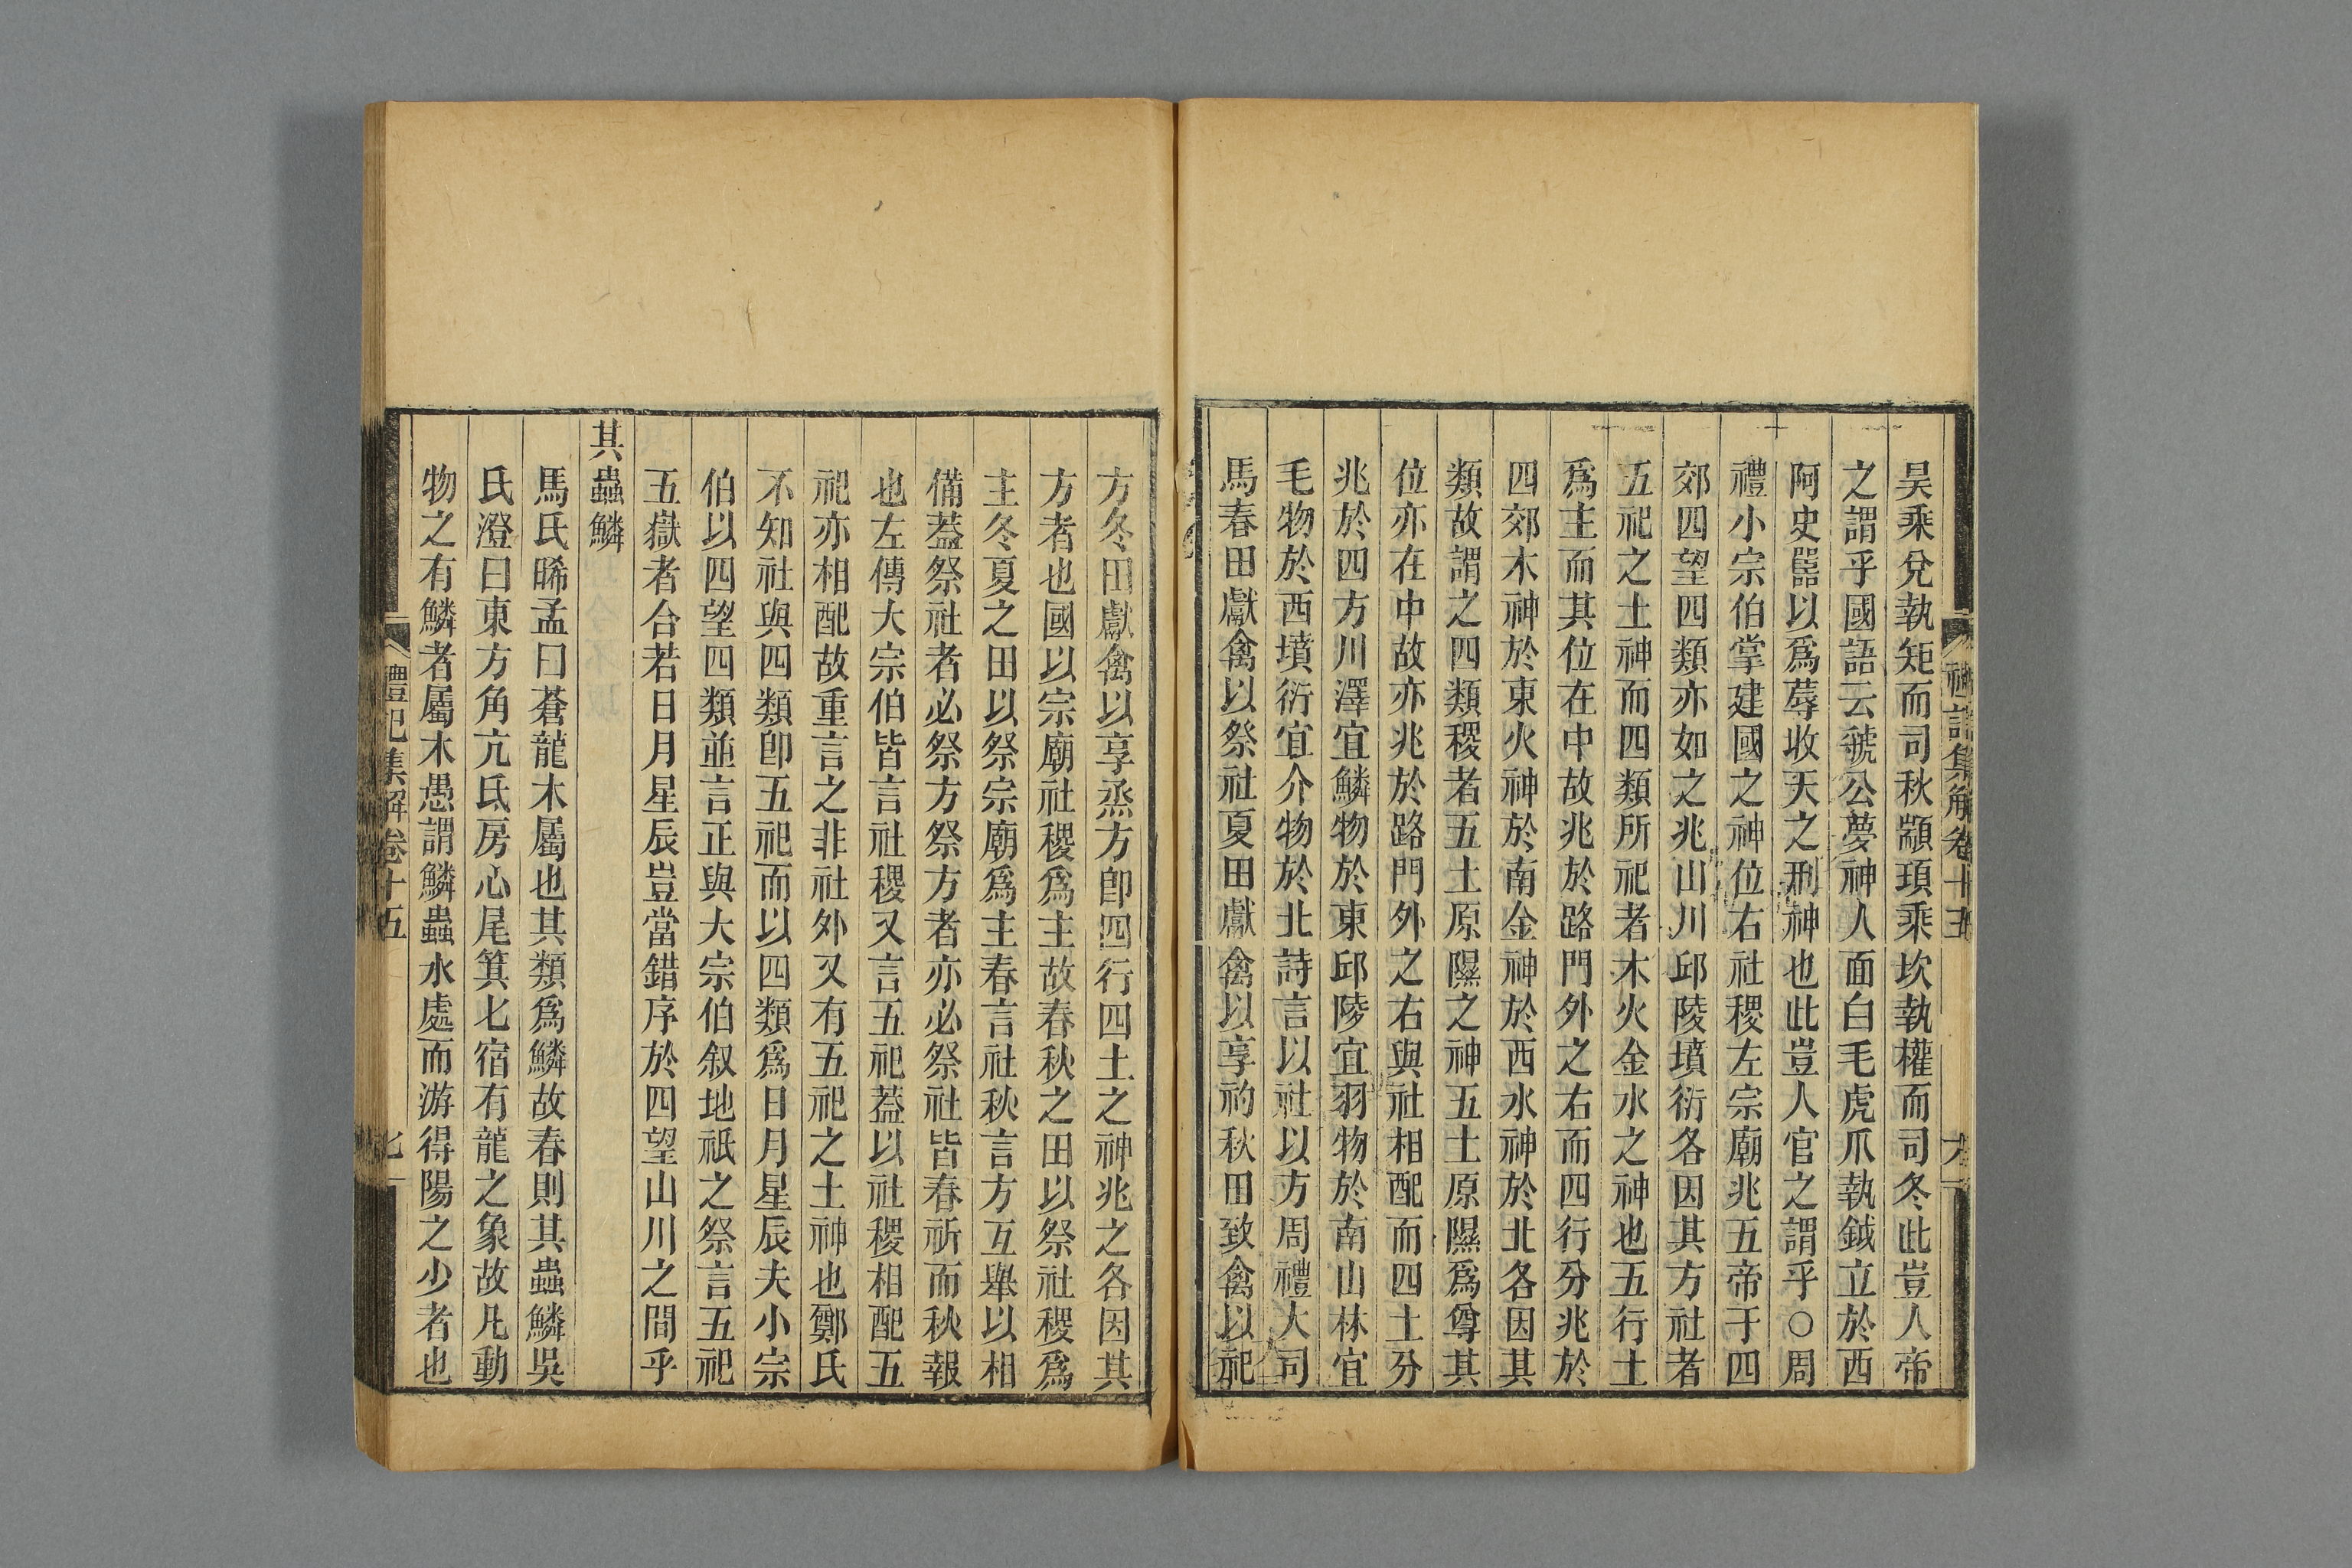 禮記集解卷十五
六
吴乘兌執矩而司秋顓頊乘坎執權而司冬此豈人帝
之謂乎國語云虢公夢神人面白毛虎爪執鉞立於西
阿史嚚以爲蓐收天之刑神也此豈人官之謂乎○周
禮小宗伯掌建國之神位右社稷左宗廟兆五帝于四
郊四望四類亦如之兆山川邱陵墳衍各因其方社者
五祀之土神而四類所祀者木火金水之神也五行土
爲主而其位在中故兆於路門外之右而四行分兆於
四郊木神於東火神於南金神於西水神於北各因其
類故謂之四類稷者五土原隰之神五土原隰爲尊其
位亦在中故亦兆於路門外之右與社相配而四土分
兆於四方川澤宜鱗物於東邱陵宜羽物於南山林宜
毛物於西墳衍宜介物於北詩言以社以方周禮大司
馬春田獻禽以祭社夏田獻禽以享礿秋田致禽以祀
方冬田獻禽以享烝方卽四行四土之神兆之各因其
方者也國以宗廟社稷爲主故春秋之田以祭社稷爲
主冬夏之田以祭宗廟爲主春言社秋言方互舉以相
備蓋祭社者必祭方祭方者亦必祭社皆春祈而秋報
也左傳大宗伯皆言社稷又言五祀蓋以社稷相配五
祀亦相配故重言之非社外又有五祀之土神也鄭氏
不知社與四類卽五祀而以四類爲日月星辰夫小宗
伯以四望四類並言正與大宗伯叙地祇之祭言五祀
五嶽者合若日月星辰豈當錯序於四望山川之間乎
其蟲鱗
馬氏晞孟曰蒼龍木屬也其類爲鱗故春則其蟲鱗吳
氏澄曰東方角亢氐房心尾箕七宿有龍之象故凡動
物之有鱗者屬木愚謂鱗蟲水處而游得陽之少者也
禮記集解卷十五
七